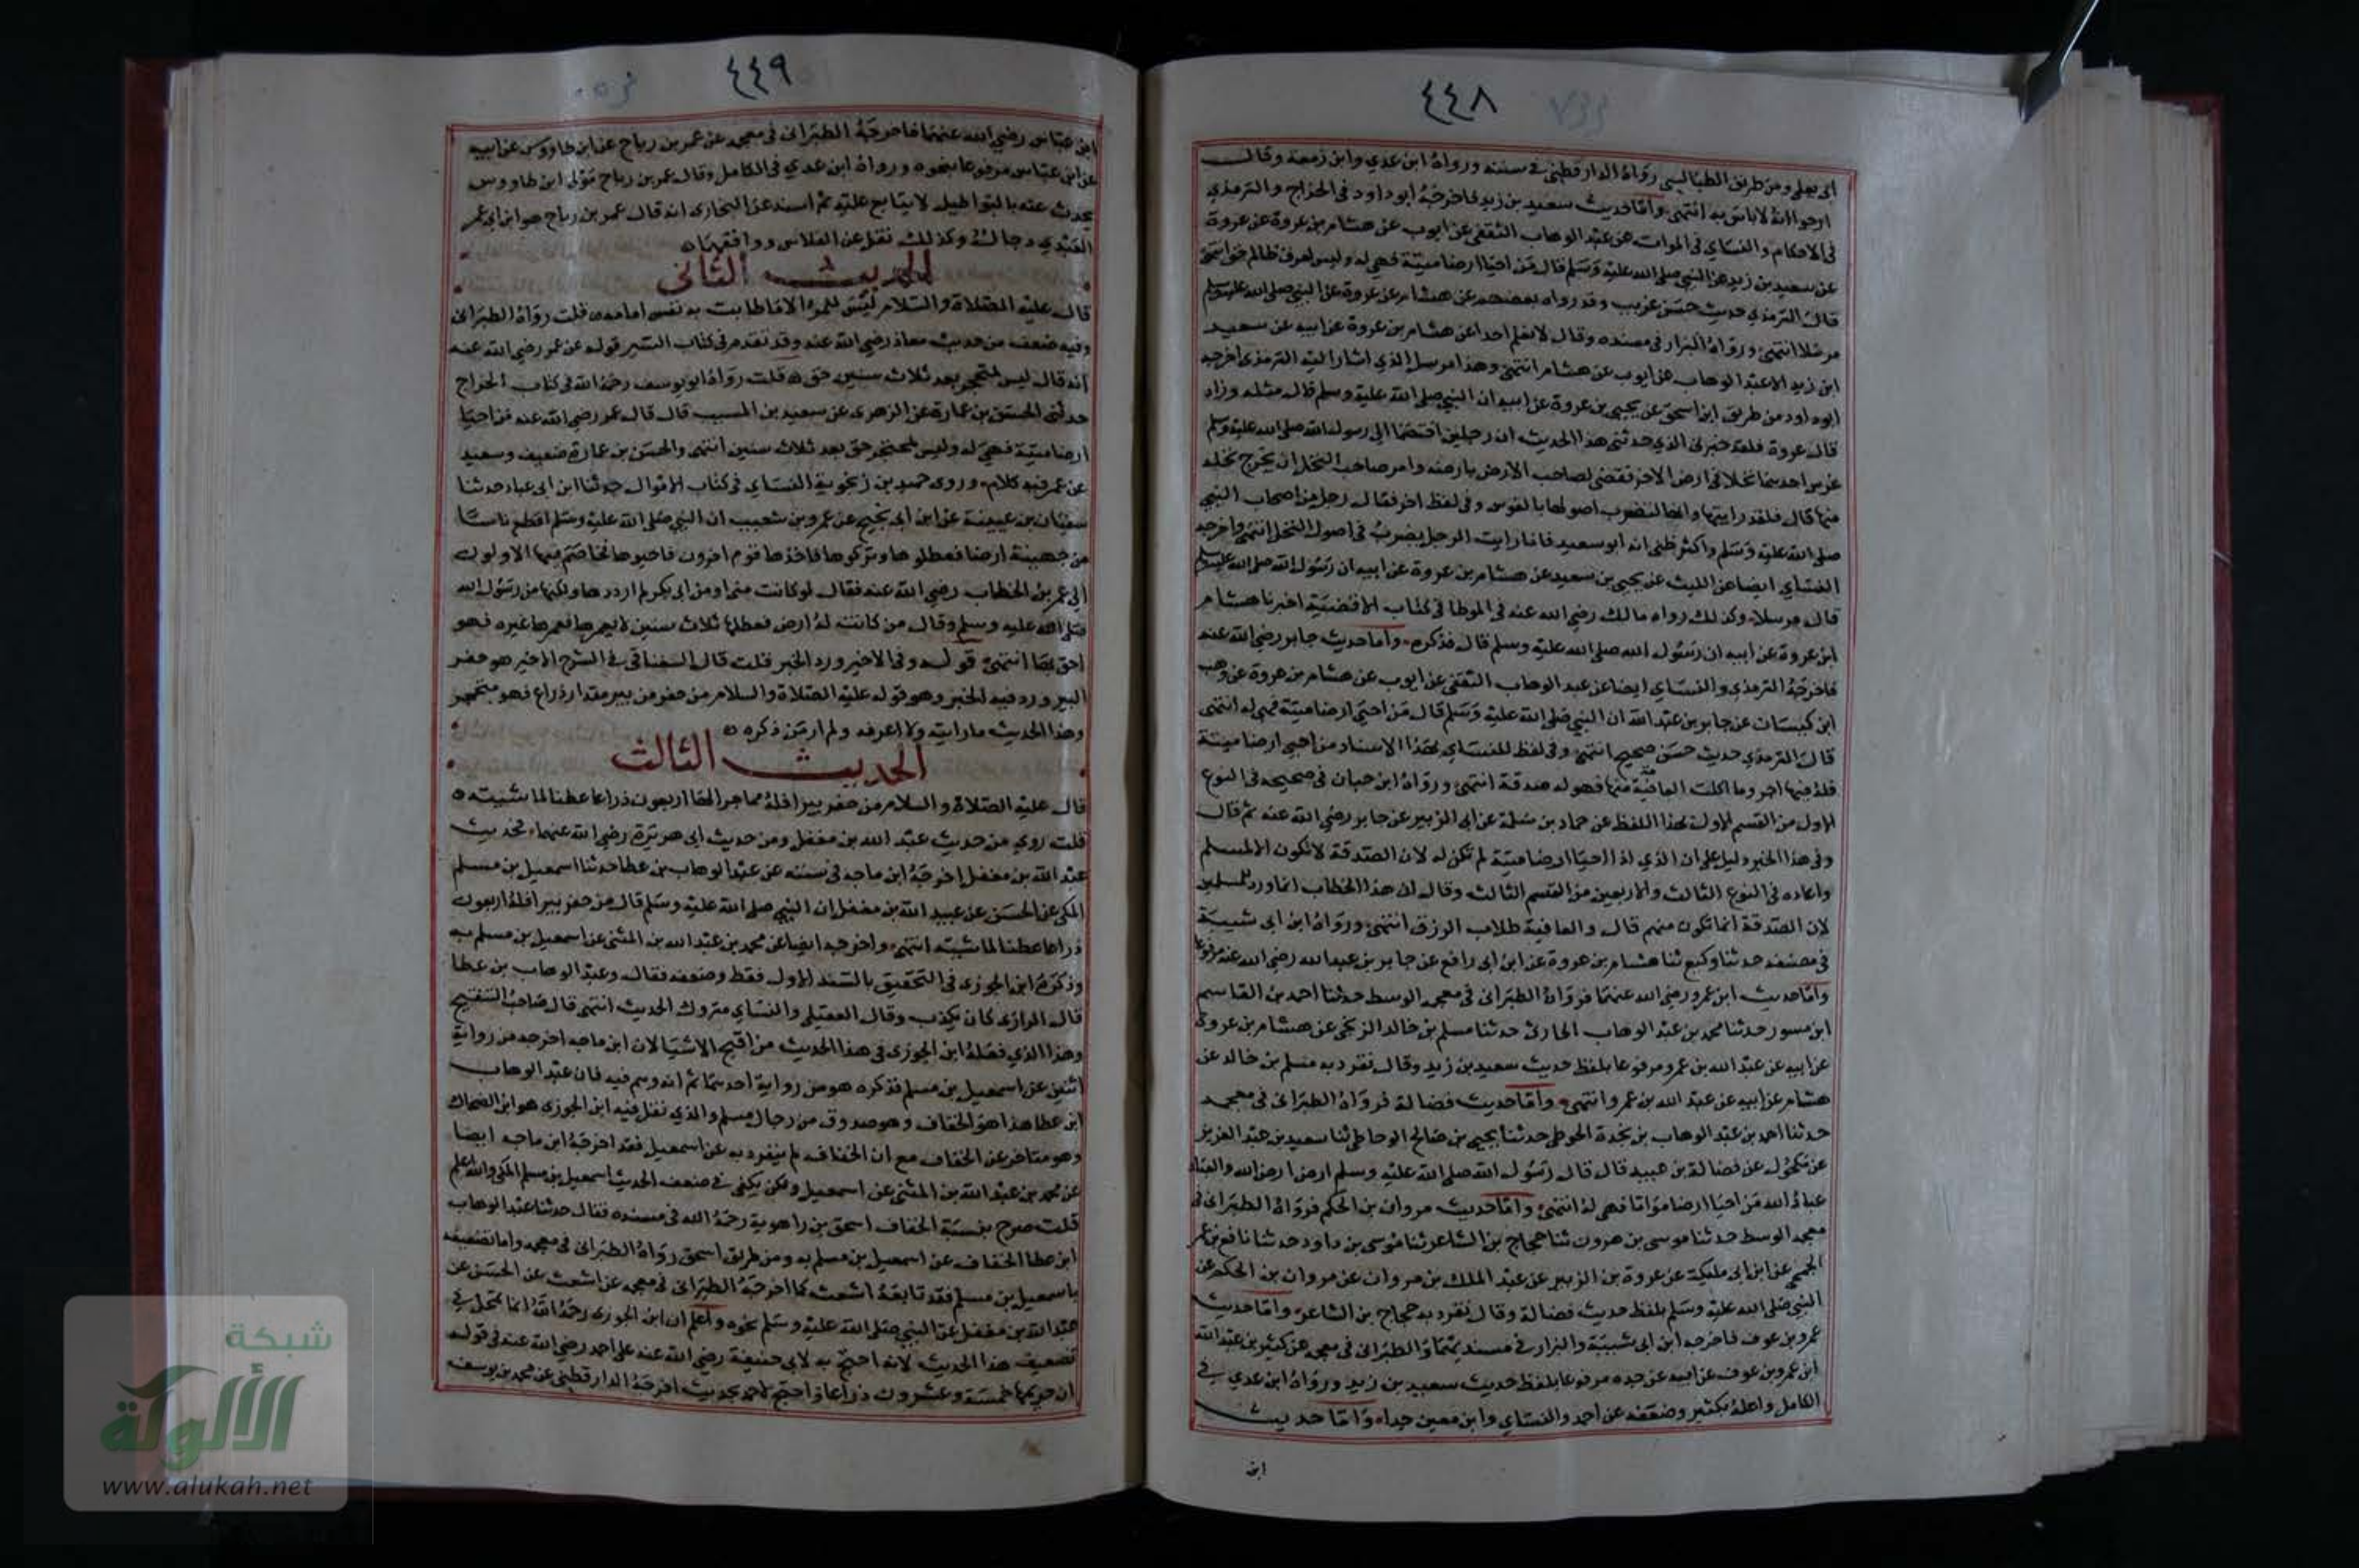 ٤٤٨
ابى يعلى ومن طريق الطيالسى رواه الدارقطنى فى سننه ورواه ابن عدي وابن زمعة وقال
ارجوا انه لا باس به انتهى وأما حديث سعيد بن زيد فاخرجه ابو داود فى الخراج والترمذي
فى الاحكام والنساي فى الموات عن عبد الوهاب الثقفى عن ايوب عن هشام بن عروة عن عروة
عن سعيد بن زيد عن النبى صلى الله عليه وسلم قال من احيا ارضا ميتة فهى له وليس لعرق ظالم حق انتهى
قال الترمذي حديث حسن غريب وقد رواه بعضهم عن هشام عن عروة عن النبى صلى الله عليه وسلم
مرسلا انتهى ورواه البزار فى مسنده وقال لا نعلم احدا عن هشام بن عروة عن ابيه عن سعيد
ابن زيد الا عبد الوهاب عن ايوب عن هشام انتهى وهذا مرسل الذي اشار اليه الترمذى اخرجه
ابو داود من طريق ابن اسحق عن يحيى بن عروة عن ابيه ان النبى صلى الله عليه وسلم قال مثله وزاد
قال عروة فلقد خبرنى الذي حدثنى هذا الحديث ان رجلين اختصما الى رسول الله صلى الله عليه وسلم
غرس احدهما نخلا فى ارض الاخر فقضى لصاحب الارض بارضه وامر صاحب النخل ان يخرج نخله
منها قال فلقد رايتها وانها لتضرب اصولها بالفوس وفى لفظ اخر فقال رجل من اصحاب النبى
صلى الله عليه وسلم واكثر ظنى انه ابو سعيد فانا رايت الرجل يضرب فى اصول النخل انتهى واخرجه
النساي ايضا عن الليث عن يحيى بن سعيد عن هشام بن عروة عن ابيه ان رسول الله صلى الله عليه وسلم
قال مرسلا وكذلك رواه مالك رضى الله عنه فى الموطا فى كتاب الاقضية اخبرنا هشام
ابن عروة عن ابيه ان رسول الله صلى الله عليه وسلم قال فذكره وأما حديث جابر رضى الله عنه
فاخرجه الترمذي والنساي ايضا عن عبد الوهاب الثقفى عن ايوب عن هشام بن عروة عن وهب
ابن كيسان عن جابر بن عبد الله ان النبى صلى الله عليه وسلم قال من احيى ارضا ميتة فهى له انتهى
قال الترمذي حديث حسن صحيح انتهى وفى لفظ للنساي بهذا الاسناد من احيى ارضا ميتة
فله فيها اجر وما اكلت العافية منها فهو له صدقة انتهى ورواه ابن حبان فى صحيحه فى النوع
الاول من القسم الاول بهذا اللفظ عن حماد بن سلمة عن ابى الزبير عن جابر رضى الله عنه ثم قال
وفى هذا الخبر دليل على ان الذمي اذا احيا ارضا ميتة لم تكن له لان الصدقة لا تكون الا لمسلم
واعاده فى النوع الثالث والاربعين من القسم الثالث وقال ان هذا الخطاب انما ورد للمسلمين
لان الصدقة انما تكون منهم قال والعافية طلاب الرزق انتهى ورواه ابن ابى شيبة
فى مصنفه حدثنا وكيع ثنا هشام بن عروة عن ابن ابى رافع عن جابر بن عبد الله رضى الله عنه مرفوعا
وأما حديث ابن عمرو رضى الله عنهما فرواه الطبرانى فى معجمه الوسط حدثنا احمد بن القاسم
ابن مسور حدثنا محمد بن عبد الوهاب الحارثى حدثنا مسلم بن خالد الزنجى عن هشام بن عروة
عن ابيه عن عبد الله بن عمرو مرفوعا بلفظ حديث سعيد بن زيد وقال تفرد به مسلم بن خالد عن
هشام عن ابيه عن عبد الله بن عمرو انتهى وأما حديث فضالة فرواه الطبرانى فى معجمه
حدثنا احمد بن عبد الوهاب بن نجدة الحوطى حدثنا يحيى بن صالح الوحاظى ثنا سعيد بن عبد العزيز
عن مكحول عن فضالة بن عبيد قال قال رسول الله صلى الله عليه وسلم ارض ارض الله والعباد
عباد الله من احيا ارضا مواتا فهى له انتهى وأما حديث مروان بن الحكم فرواه الطبرانى فى
معجمه الوسط حدثنا موسى بن هرون ثنا حجاج بن الشاعر ثنا موسى بن داود حدثنا نافع بن عمر
الجمحى عن ابن ابى مليكة عن عروة بن الزبير عن عبد الملك بن مروان عن مروان بن الحكم عن
النبى صلى الله عليه وسلم بلفظ حديث فضالة وقال تفرد به حجاج بن الشاعر وأما حديث
عمرو بن عوف فاخرجه ابن ابى شيبة والبزار فى مسنديهما والطبرانى فى معجمه عن كثير بن عبد الله
ابن عمرو بن عوف عن ابيه عن جده مرفوعا بلفظ حديث سعيد بن زيد ورواه ابن عدي فى
الكامل واعله بكثير وضعفه عن احمد والنساي وابن معين جدا وأما حديث
ابن
٤٤٩
ابن عباس رضى الله عنهما فاخرجه الطبرانى فى معجمه عن عمر بن رباح عن ابن طاووس عن ابيه
عن ابن عباس مرفوعا بنحوه ورواه ابن عدي فى الكامل وقال عمر بن رباح مولى ابن طاووس
يحدث عنه بالبواطيل لا يتابع عليه ثم اسند عن البخارى انه قال عمر بن رباح هو ابن ابى عمر
العبدي دجال وكذلك نقل عن الفلاس ووافقهما
الحديث الثانى
قال عليه الصلاة والسلام ليس للمرء الا ما طابت به نفس امامه قلت رواه الطبرانى
وفيه ضعف من حديث معاذ رضى الله عنه وقد تقدم فى كتاب السير قوله عن عمر رضى الله عنه
انه قال ليس لمتحجر بعد ثلاث سنين حق قلت رواه ابو يوسف رحمه الله فى كتاب الخراج
حدثنى الحسن بن عمارة عن الزهرى عن سعيد بن المسيب قال قال عمر رضى الله عنه من احيا
ارضا ميتة فهى له وليس لمحتجر حق بعد ثلاث سنين انتهى والحسن بن عمارة ضعيف وسعيد
عن عمر فيه كلام وروى حميد بن زنجوية النساي فى كتاب الاموال حدثنا ابن ابى عباد حدثنا
سفيان بن عيينة عن ابن ابى نجيح عن عمرو بن شعيب ان النبى صلى الله عليه وسلم اقطع ناسا
من جهينة ارضا فعطلوها وتركوها فاخذها قوم اخرون فاحيوها فخاصم فيها الاولون
الى عمر بن الخطاب رضى الله عنه فقال لو كانت منى او من ابى بكر لم ارددها ولكنها من رسول الله
صلى الله عليه وسلم وقال من كانت له ارض فعطلها ثلاث سنين لا يعمرها فعمرها غيره فهو
احق بها انتهى قوله وفى الاخير ورد الخبر قلت قال السغناقى فى الشرح الاخير هو حفر
البير ورد فيه الخبر وهو قوله عليه الصلاة والسلام من حفر من بير مقدار ذراع فهو متحجر
وهذا الحديث ما رايته ولا اعرفه ولم ار من ذكره
الحديث الثالث
قال عليه الصلاة والسلام من حفر بيرا فله مما حولها اربعون ذراعا عطنا لماشيته
قلت روي من حديث عبد الله بن مغفل ومن حديث ابى هريرة رضى الله عنهما فحديث
عبد الله بن مغفل اخرجه ابن ماجه فى سننه عن عبد الوهاب بن عطا حدثنا اسمعيل بن مسلم
المكى عن الحسن عن عبد الله بن مغفل ان النبى صلى الله عليه وسلم قال من حفر بيرا فله اربعون
ذراعا عطنا لماشيته انتهى واخرجه ايضا عن محمد بن عبد الله بن المثنى عن اسمعيل بن مسلم به
وذكره ابن الجوزى فى التحقيق بالسند الاول فقط وضعفه فقال وعبد الوهاب بن عطا
قال الرازى كان يكذب وقال العقيلى والنساي متروك الحديث انتهى قال صاحب التنقيح
وهذا الذي فعله ابن الجوزى فى هذا الحديث من اقبح الاشيا لان ابن ماجه اخرجه من رواية
اثنين عن اسمعيل بن مسلم فذكره هو من رواية احدهما ثم انه وهم فيه فان عبد الوهاب
ابن عطا هذا هو الخفاف وهو صدوق من رجال مسلم والذي نقل فيه ابن الجوزى هو ابن الضحاك
وهو متاخر عن الخفاف مع ان الخفاف لم ينفرد به عن اسمعيل فقد اخرجه ابن ماجه ايضا
عن محمد بن عبد الله بن المثنى عن اسمعيل ولكن يكفى فى ضعف الحديث اسمعيل بن مسلم المكى والله اعلم
قلت صرح بنسبة الخفاف اسحق بن راهوية رحمه الله فى مسنده فقال حدثنا عبد الوهاب
ابن عطا الخفاف عن اسمعيل بن مسلم به ومن طريق اسحق رواه الطبرانى فى معجمه واما تضعيفه
باسمعيل بن مسلم فقد تابعه اشعث كما اخرجه الطبرانى فى معجمه عن اشعث عن الحسن عن
عبد الله بن مغفل عن النبى صلى الله عليه وسلم نحوه واعلم ان ابن الجوزى رحمه الله انما تحمل فى
تضعيف هذا الحديث لانه احتج به لابى حنيفة رضى الله عنه على احمد رضى الله عنه فى قوله
ان حريمها خمسة وعشرون ذراعا واحتج لاحمد بحديث اخرجه الدارقطنى عن محمد بن يوسف
شبكة
الألوكة
www.alukah.net